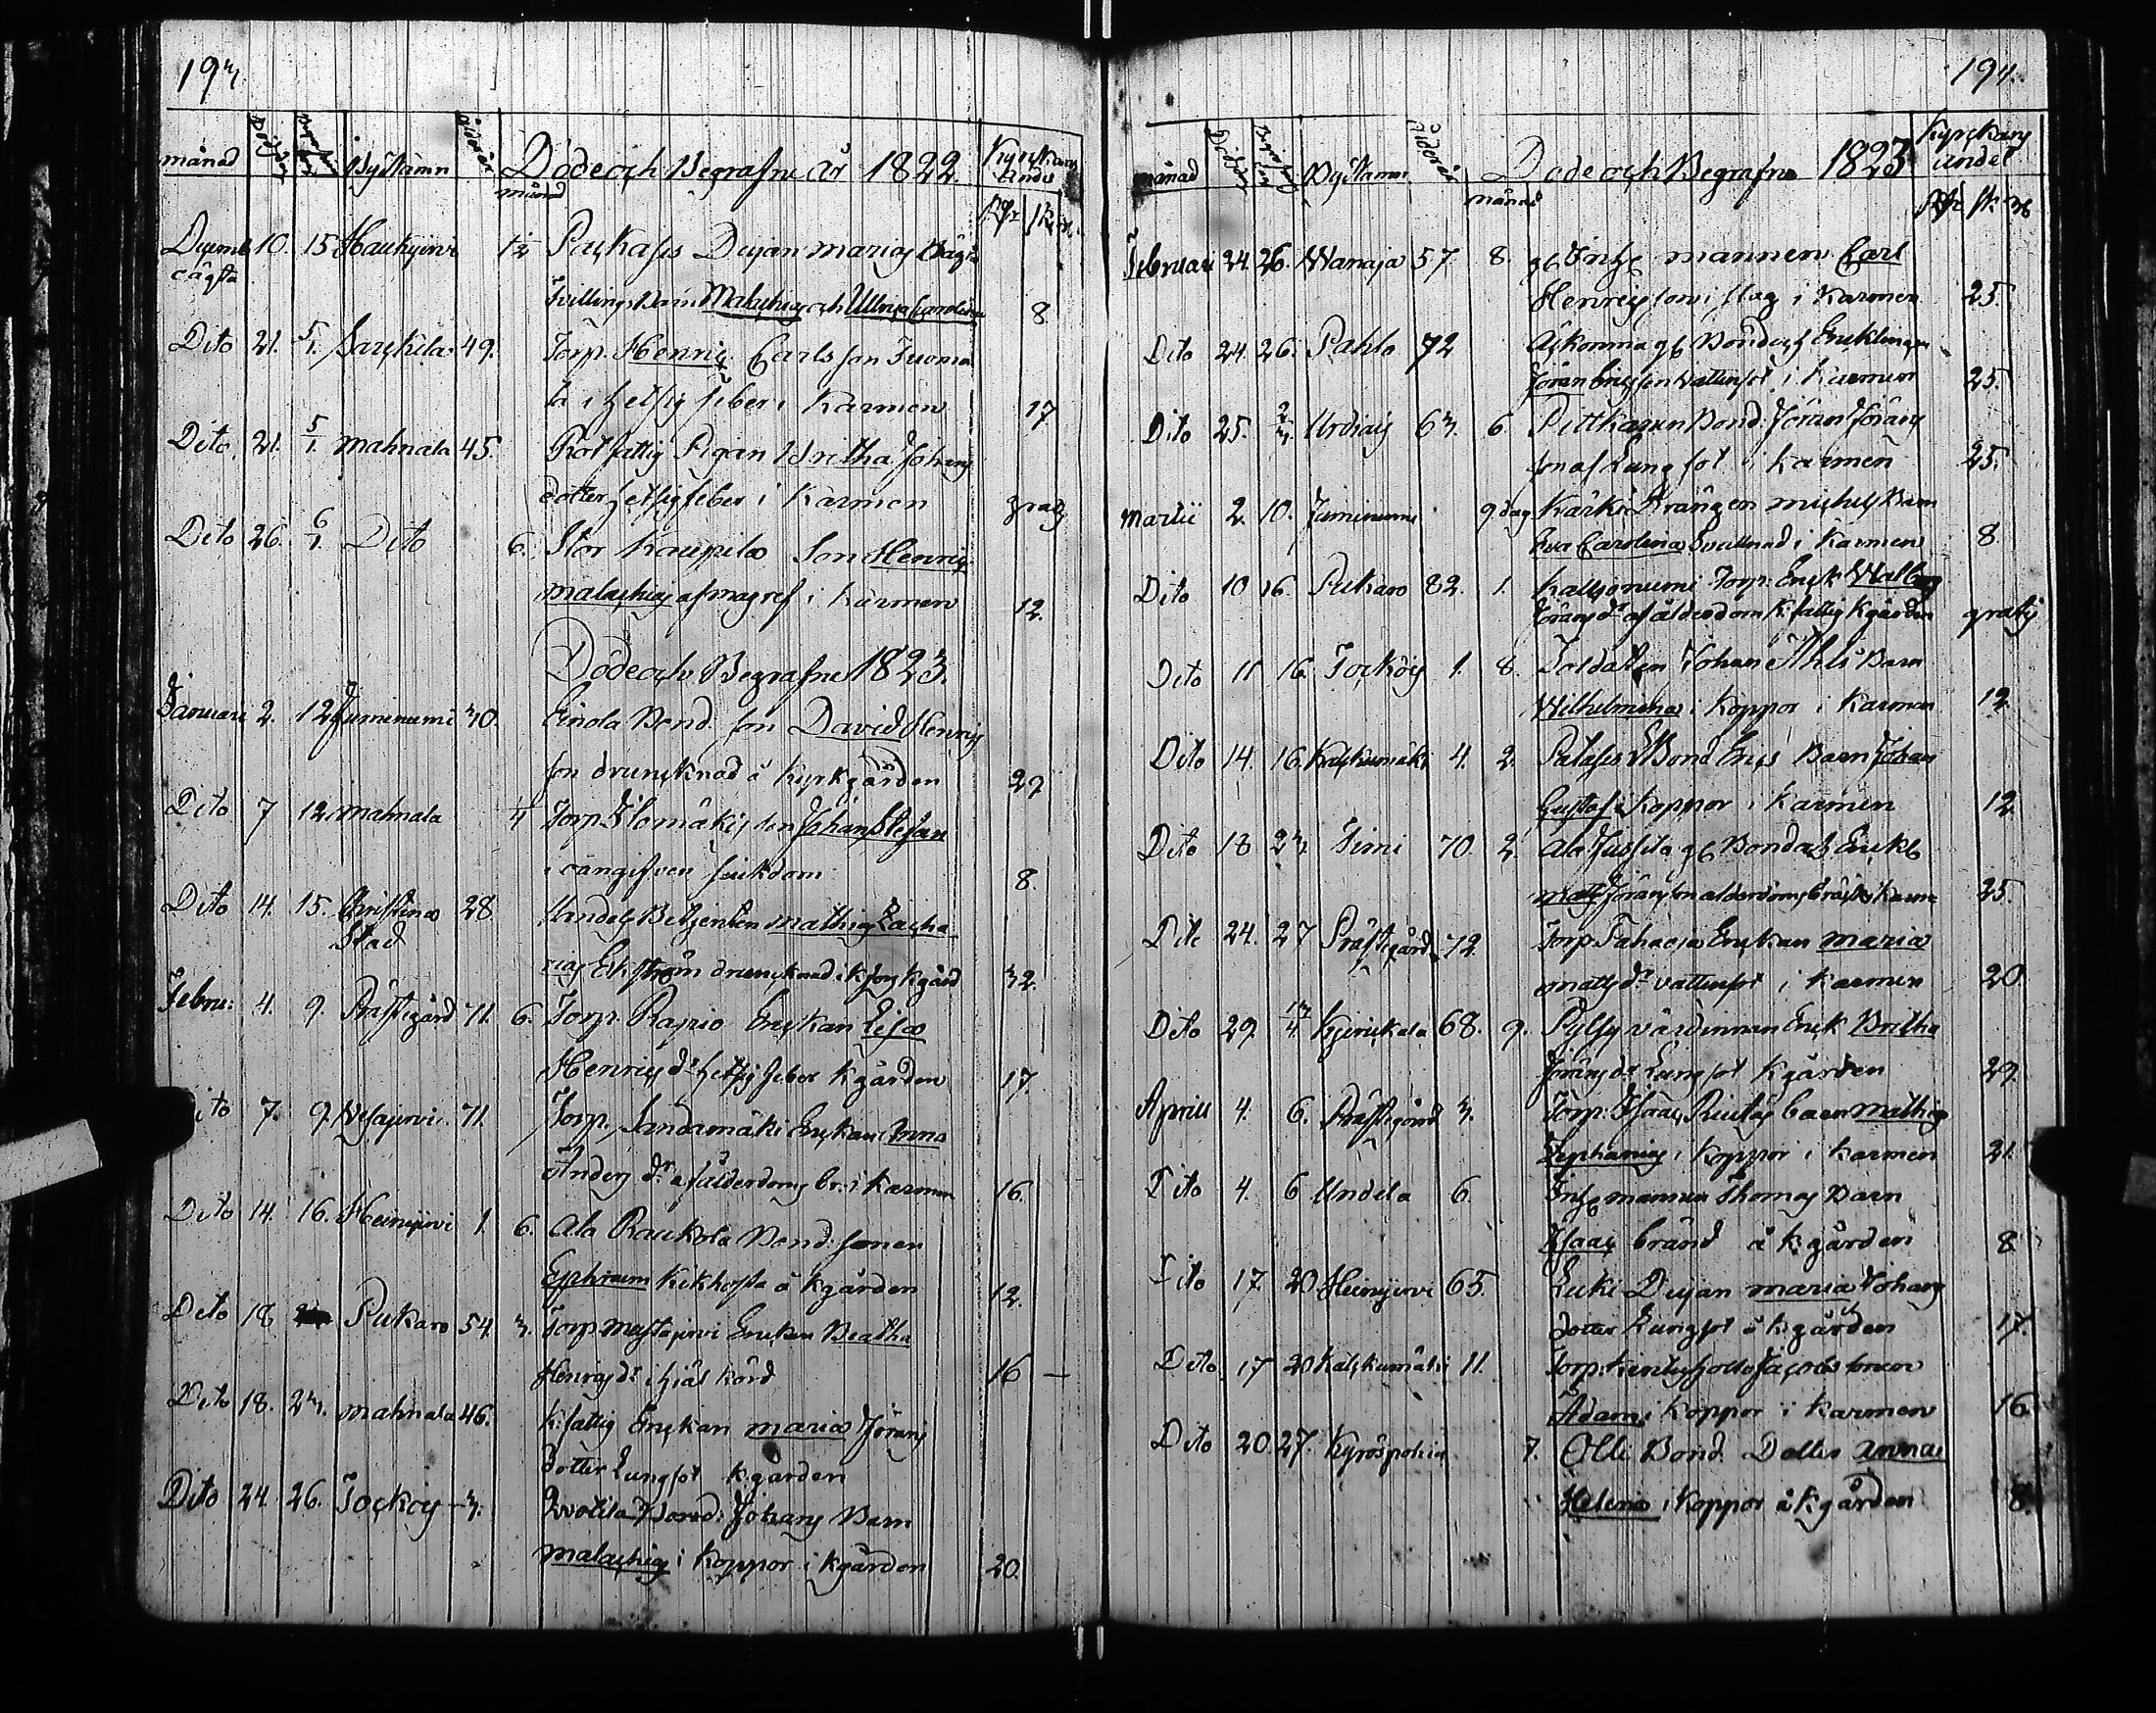 193
månad Död Begrafn By Namn ålder år Döde och Begrafne år 1822. Kyrckans Andel
månad Rdr sk
Decemb 10. 15 Haukijervi 1/2 Pukasis Deijan Marias oägta
oägta Tvillings Barn Malachias och Ulrica Carolina 8
Dito 21. 5/1. Sarckila 49. Torp. Henric Carls son Tuoma
la i hetsig feber i Karmen 17
Dito. 21. 5/1. Mahnala 45. Rot fattig Pigan Britha Johans
dotter hetsig feber i Karmen gratis
Dito 26. 6/1. Dito 6. Stor Kaupila Son Henric
Malachias af magref i Karmen 12.
Döde och Begrafne 1823.
Januari 2. 12 Jumenumi 30. Einola Bond. son David Henrics
son druncknad å Kyrkgården 29
Dito 7 12 Mahnala 3 Torp. Ilomäkis son Johan Stefan
i oangifven siukdom 8.
Dito 14. 15. Christina 28 Handels Betjenten Mathias Zacha
Stad rias Ekström druncknad i Kyrkgård 32.
Febru: 4. 9. Prästgård 71. 6. Torp. Rapio Enckan Lisa
Henrics dr hetsig feber Kgården 17.
Dito 7. 9. Vesajervi 71. Torp. Sandamäki Enckan Anna
Anders dr af ålderdoms br. i Karmen 16.
Dito 14. 16. Heinijervi 1. 6. Ala Rauckola Bond. sonen
Ephraim Kikhosta å Kgården 12.
Dito 18 Pukaro 54. 3. Torp Mustajervi Enckan Beatha
Henrics dr ihjäl körd 16 —
Dito 18. 23. Mahnala 46. K. fattig Enckan Maria Jörans
dotter Lungsot Kgården
Dito 24. 26. Tockois 3. Bond. Johans Barn
Malachias i Koppor i Kgården 20.
194.
månad Döds Begrafn By Namn Ålder år Döde och Begrafne 1823 Kyrckans Andel
månad Rdr sk
Februari 24. 26. Wanaja 57. 8. gl. Inhs mannen Carl
Henrics son i slag i Karmen 25.
Dito 24. 26. Pahlo 72 Åkomma gl. Bondens Encklingen
Jöran Erics son Vattusot i Karmen 25.
Dito 25. 2/3. Urdiais 63. 6. Pittkanen Bond. Jöran Jörans
son af Lungsot i Karmen 25.
Martii 2. 10. Jumenumi 9 dag Kärki Drängen Michels Barn
Eva Carolina Svullnad i Karmen 8
Dito 10 16. Pukaro 82. 1. Torp. Enck. Walborg
Jörans dr af ålderdom K. fattig Kgården gratis
Dito 11 16 Tockois 1. 8. Soldaten Johan Åhls Barn
Wilhelmina i Koppor i Karmen 12.
Dito 14. 16. Kalckumäki 4. 2. Bond Erics Barn Johan
Gustaf i Koppor i Karmen 12.
Dito 18 23. Timi 70. 2. Ala Jussila gl. Bondens Enckl.
Matts Jörans son ålderdoms bräck i Karm 25.
Dito 24. 27 Prästgård 72. Torp. Enckan Maria
Matts dr Vattusot i Karmen 20.
Dito 29. 13/4. Kjerickala 68. 9. Pylsy värdinnan Enck Britha
Jörans dr Lungsot Kgården 29.
Aprill 4. 6. Prästgård 3. Torp. Isaac barn Mathias
Zephanias i Koppor i Karmen 21.
Dito 4. 6 Undela 6. Inhs mannen Thomas Barn
Isaac bränd å Kgården 8
Dito 17. 20 Heinijervi 65. Deijan Maria Johans
dotter Lungsot å Kgården 17.
Dito 17 20 Kalckumäki 11. Torp. Jacobs sonen
Adam i Koppor i Karmen 16
Dito 20 27. Kyröspohia 7. Olli Bond. Dotter Anna
Helena i Koppor å Kgården 8.